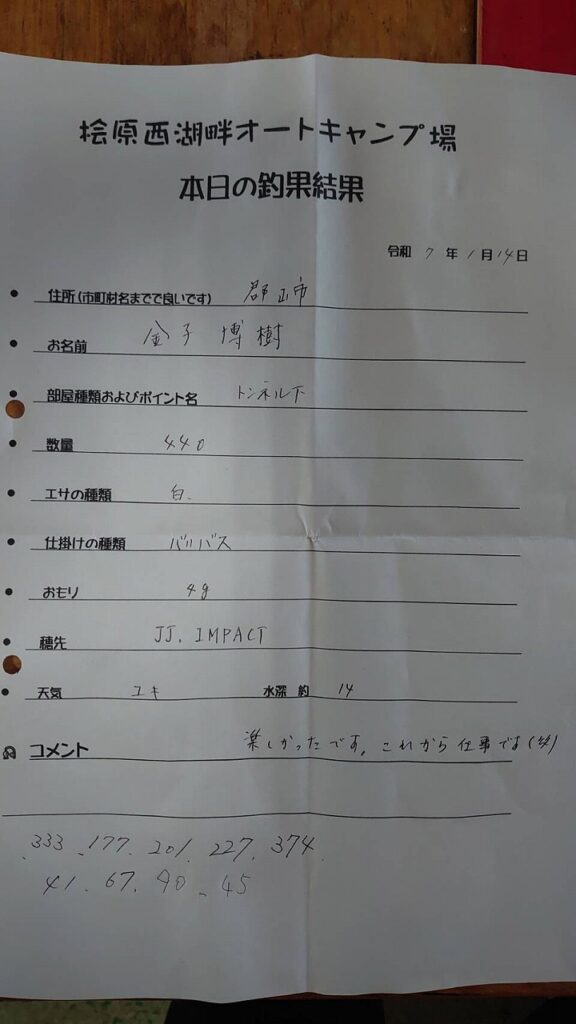 桧原西湖畔オートキャンプ場
本日の釣果結果
令和 7 年 1 月 14 日
住所(市町村名までで良いです) 郡山市
お名前 金子 博樹
部屋種類およびポイント名 トンネル下
数量 440
エサの種類 白.
仕掛けの種類 バリバス
おもり 4g
穂先 JJ. IMPACT
天気 ユキ 水深 約 14
コメント 楽しかったです。これから仕事です(笑)
.333 .177. 201. 227. 374.
41. 67. 90. 45